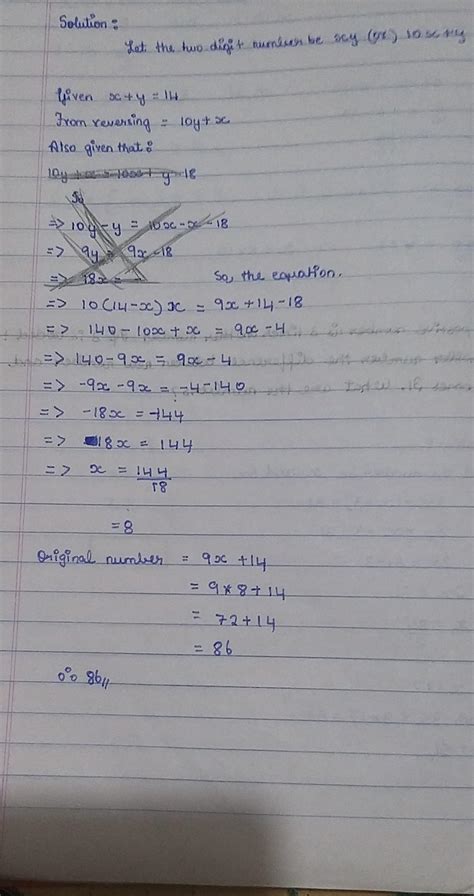 Solution:
Let the two digit number be xy (or) 10x+y
Given x+y = 14
From reversing = 10y+x
Also given that:
10y+x = 10x+y-18
So
=> 10y-y = 10x-x-18
=> 9y = 9x-18
=> 18x = -
So, the equation.
=> 10(14-x)x = 9x+14-18
=> 140-10x+x = 9x-4
=> 140-9x = 9x-4
=> -9x-9x = -4-140
=> -18x = -144
=> 18x = 144
=> x = 144/18
= 8
Original number = 9x+14
= 9*8+14
= 72+14
= 86
∴ 86//